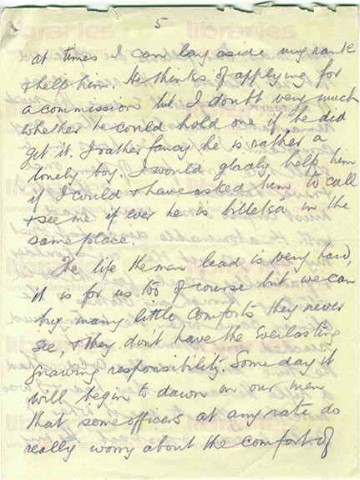 5
at times I can lay aside my rank
& help him. He thinks of applying for
a commission but I doubt very much
whether he could hold one if he did
get it. I rather fancy he is rather a
lonely boy. I would gladly help him
if I could & have asked him to call
& see me if ever he is billeted in the
same place.
The life the men lead is very hard,
it is for us too of course but we can
buy many little comforts they never
see, & they don't have the everlasting
gnawing responsibility. Some day it
will begin to dawn on our men
that some officers at any rate do
really worry about the comfort of
libraries
libraries